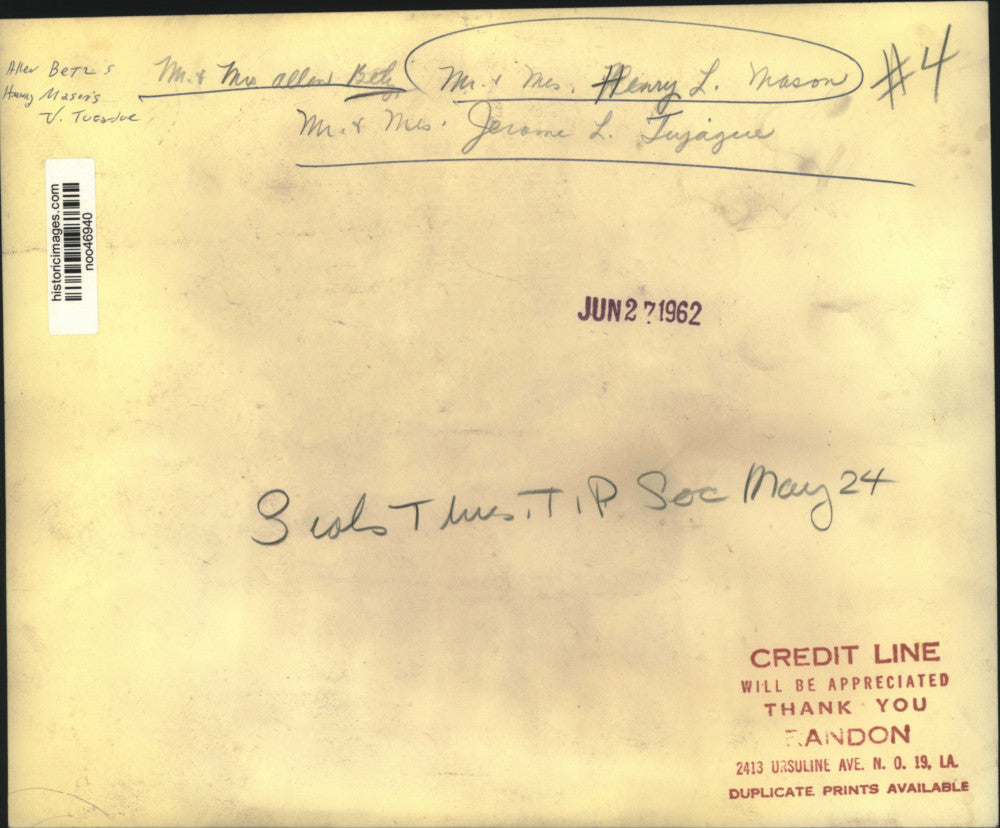 Allen Betz's
Henry Mason's
J.
Mr. & Mrs Allen Betz
Mr. & Mrs. Henry L. Mason
#4
Mr. & Mrs. Jerome L. Tujague
historicimages.com
noo46940
JUN 27 1962
3 cols Thurs. T.P. Soc May 24
CREDIT LINE
WILL BE APPRECIATED
THANK YOU
RANDON
2413 URSULINE AVE. N. O. 19, LA.
DUPLICATE PRINTS AVAILABLE